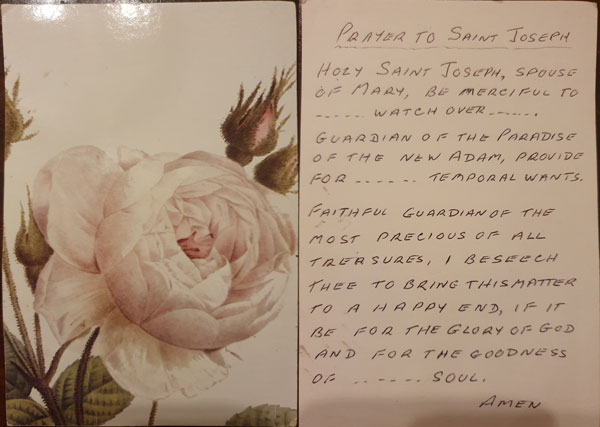 PRAYER TO SAINT JOSEPH
HOLY SAINT JOSEPH, SPOUSE
OF MARY, BE MERCIFUL TO
------ WATCH OVER ------.
GUARDIAN OF THE PARADISE
OF THE NEW ADAM, PROVIDE
FOR ------ TEMPORAL WANTS.
FAITHFUL GUARDIAN OF THE
MOST PRECIOUS OF ALL
TREASURES, I BESEECH
THEE TO BRING THIS MATTER
TO A HAPPY END, IF IT
BE FOR THE GLORY OF GOD
AND FOR THE GOODNESS
OF ------ SOUL.
AMEN